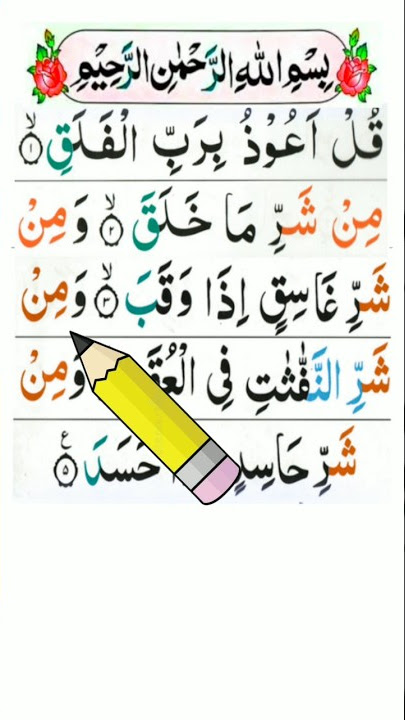 بِسْمِ اللهِ الرَّحْمٰنِ الرَّحِيْمِ
قُلْ اَعُوْذُ بِرَبِّ الْفَلَقِ ۙ ۱
مِنْ شَرِّ مَا خَلَقَ ۙ ۲ وَ مِنْ
شَرِّ غَاسِقٍ اِذَا وَقَبَ ۙ ۳ وَ مِنْ
شَرِّ النَّفّٰثٰتِ فِی الْعُقَ وَ مِنْ
شَرِّ حَاسِدٍ حَسَدَ ۵ ع